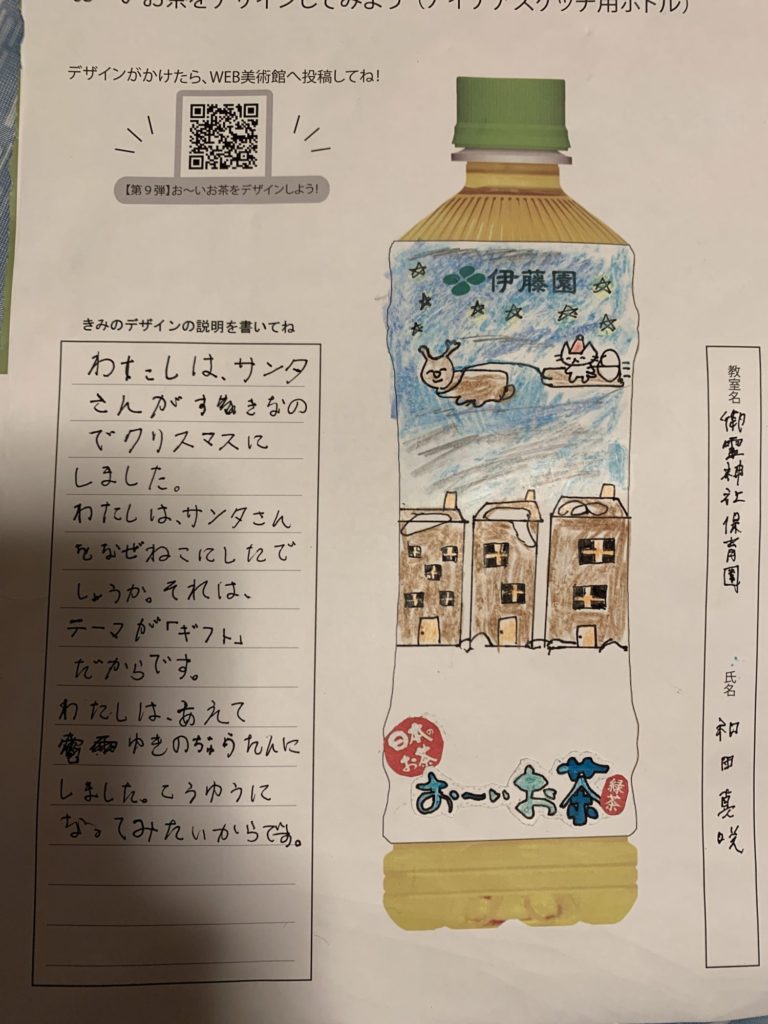 お〜いお茶をデザインしてみよう（アイデアスケッチ用ボトル）
デザインがかけたら、WEB美術館へ投稿してね！
【第９弾】お〜いお茶をデザインしよう！
きみのデザインの説明を書いてね
わたしは、サンタ
さんがすきなの
でクリスマスに
しました。
わたしは、サンタさん
をなぜねこにしたで
しょうか。それは、
テーマが「ギフト」
だからです。
わたしは、あえて
ゆきのちょうたんに
しました。こうゆうに
なってみたいからです。
伊藤園
日本の
お茶
お〜いお茶
緑茶
教室名
御霊神社保育園
氏名
和田真咲